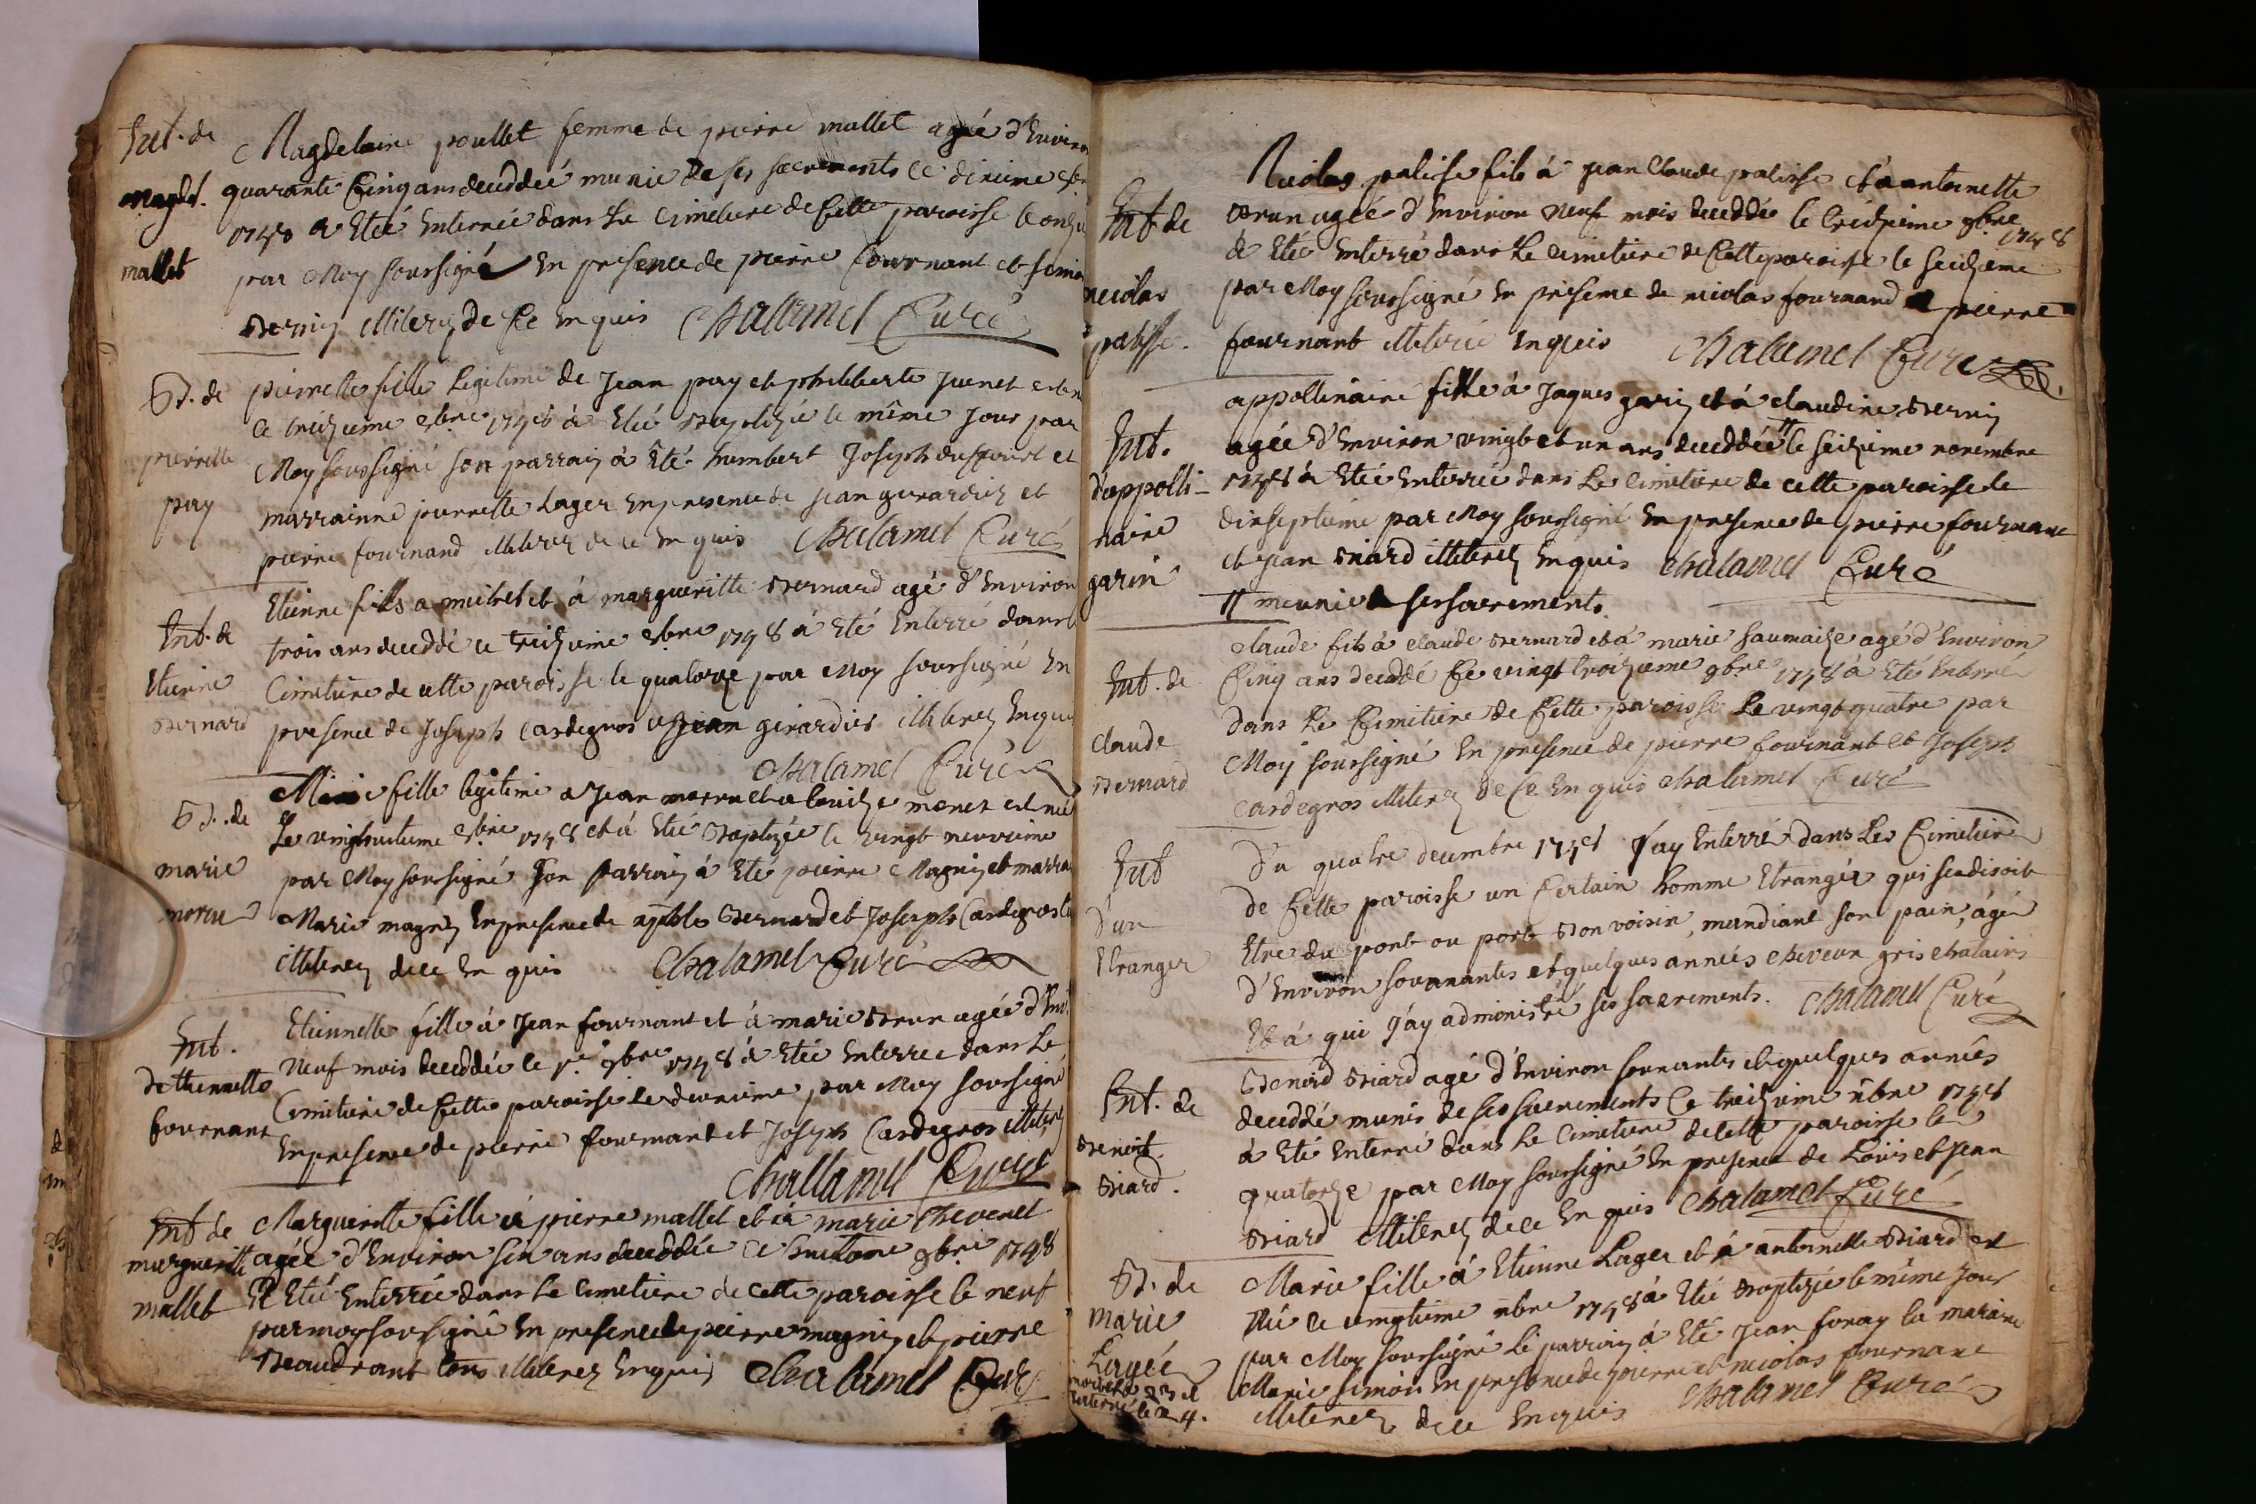 Ent. de
Magdel.
mallet
Magdelaine poullet femme de pierre mallet agée d'Environ
quarante Cinq ans decedée munie de ses sacrements le dixieme
1748 a Eté Enterrée dans Le Cimetiere de Cette paroisse le onze
par Moy soussigné En presence de pierre fournant et
Bernin illiterez de Ce Enquis Chalamel Curé
Bt. de
pierrette
pay
pierrette fille Legitime de Jean pay et philiberte Junet est née
le treizieme 8bre 1748 à Eté Baptizée le même Jour par
Moy soussigné son parrain à Été humbert Joseph et
marrainne pierrette Lager En presence de jean girardin et
pierre fournand illiterez de ce Enquis Chalamel Curé
Ent. de
Etienne
Bernard
Etienne fils a et à margueritte Bernard agé d'Environ
trois ans decedé le treizieme 8bre 1748 à Eté Enterré dans le
Cimetiere de cette paroisse le quatorze par Moy soussigné En
presence de Joseph Cardegros et jean girardin illiterez Enquis
Chalamel Curé
Bt. de
marie
moreu
Marie fille legitime a Jean moreu et a monet est née
Le vingthuitieme 8bre 1748 et à Eté Baptizée le vingt neuvieme
par Moy soussigné Son parrain à Eté pierre Magnin et marraine
Marie magnin En presence de Bernard et Joseph Cardegros
illiterez de ce En quis Chalamel Curé
Ent.
detiennette
fournant
Etiennette fille à Jean fournant et à marie Brun agée d'Env.
Neuf mois decedée le 1er. 9bre 1748 à Eté Enterrée dans Le
Cimetiere de Cette paroisse Le deuxieme par Moy soussigné
En presence de pierre fournant et Joseph Cardegros illiterez
Challamel Curé
Ent de
margueritte
mallet
Margueritte fille à pierre mallet et à marie thevenet
agée d'Environ six ans decedée le huitieme 9bre 1748
Et Eté Enterrée dans Le Cimetiere de cette paroisse le neuf
par moy soussigné En presence de pierre magnin et pierre
Beaudrant tous illiterez Enquis Chalamel Curé
Ent de
nicolas
palisse.
Nicolas palisse fils à jean Claude palisse et à antoinette
Brun agée d'Environ Neuf mois decedée le treizieme 9bre
1748
à Eté Enterré dans Le Cimetiere de Cette paroisse le seizieme
par Moy soussigné En presence de nicolas fournand et pierre
fournant illiteré Enquis Chalamel Curé
Ent.
d'appolli-
naire
garin
appollinaire fille à Jaques garin et à Claudine Bernin
agée d'Environ vingt et un ans decedée # le seizieme novembre
1748 à Eté Enterrée dans Le Cimetiere de cette paroisse le
dixseptieme par Moy soussigné En presence de pierre fournant
et jean Briard illiterez Enquis Chalamel Curé
# meunie de ses sacrements.
Ent. de
Claude
Bernard
Claude fils à Claude Bernard et à marie saumaize agé d'Environ
Cinq ans decedé Ce vingt troizieme 9bre 1748 à Eté Enterré
dans Le Cimitiere de Cette paroisse Le vingt quatre par
Moy soussigné En presence de pierre fournant et Joseph
Cardegros illiterez de Ce En quis Chalamel Curé
Ent
d'un
Etranger
Du quatre decembre 1748 J'ay Enterré dans Le Cimetiere
de Cette paroisse un Certain homme Etrangér qui se disoit
Etre du pont ou port Bonvoisin, mandiant son pain, âgé
d'Environ soixantes et quelques années cheveux gris chatains
Et à qui J'ay administré ses sacrements. Chalamel Curé
Ent. de
Benoit
Briard.
Benoid Briard agé d'Environ soixantes et quelques années
decedé munis de ses sacrements Ce treizieme xbre 1748
à Eté Enterré dans Le Cimetiere de cette paroisse le
quatorze par Moy soussigné En presence de Loüis et Jean
Briard illiterez de ce En quis Chalamel Curé
Bt. de
Marie
Lagér
morte le 23 et
Enterrée le 24.
Marie fille à Etienne Lager et à antoinette Briard est
Née le vingtieme xbre 1748 à Eté Baptizée le même Jour
par Moy soussigné Le parrain à Eté Jean foray la maraine
Marie simon En presence de pierre et nicolas fournant
illiterez de ce Enquis Chalamel Curé